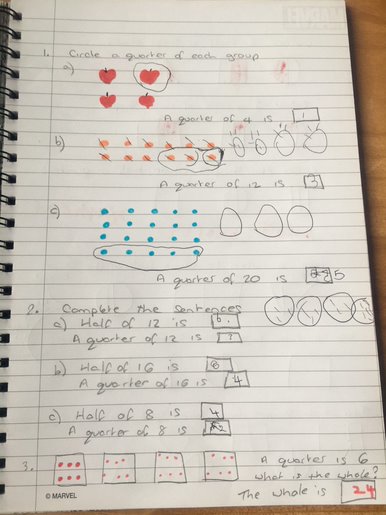 1. Circle a quarter of each group
a)
A quarter of 4 is 1
b)
A quarter of 12 is 3
c)
A quarter of 20 is 5
2. Complete the sentences
a) Half of 12 is 6
A quarter of 12 is
b) Half of 16 is 8
A quarter of 16 is 4
c) Half of 8 is 4
A quarter of 8 is
3. A quarter is 6
what is the whole?
The whole is 24
© MARVEL